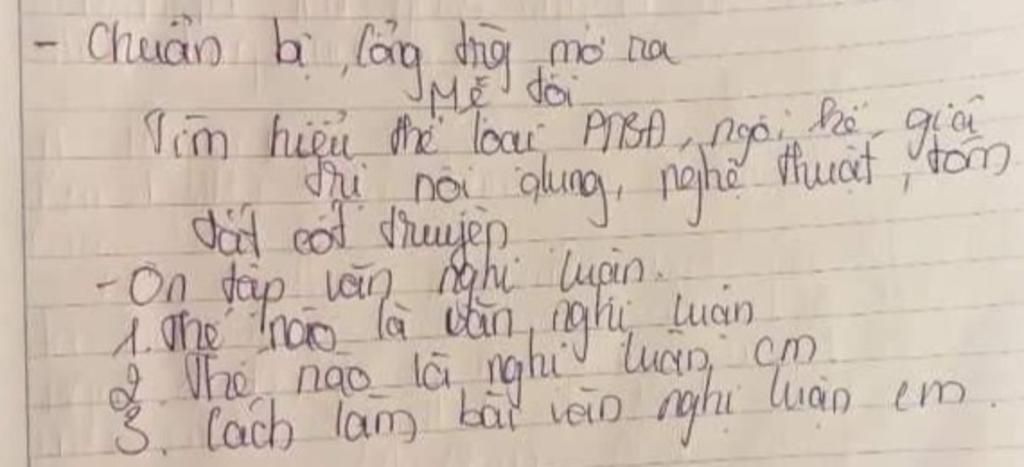 - Chuẩn bị, Cổng trường mở ra
Mẹ tôi
Tìm hiểu thể loại PTBĐ, ngôi kể, giá
trị nội dung, nghệ thuật, tóm
tắt cốt truyện
- Ôn tập văn nghị luận.
1. Thế nào là văn nghị luận
2. Thế nào là nghị luận cm
3. Cách làm bài văn nghị luận cm.